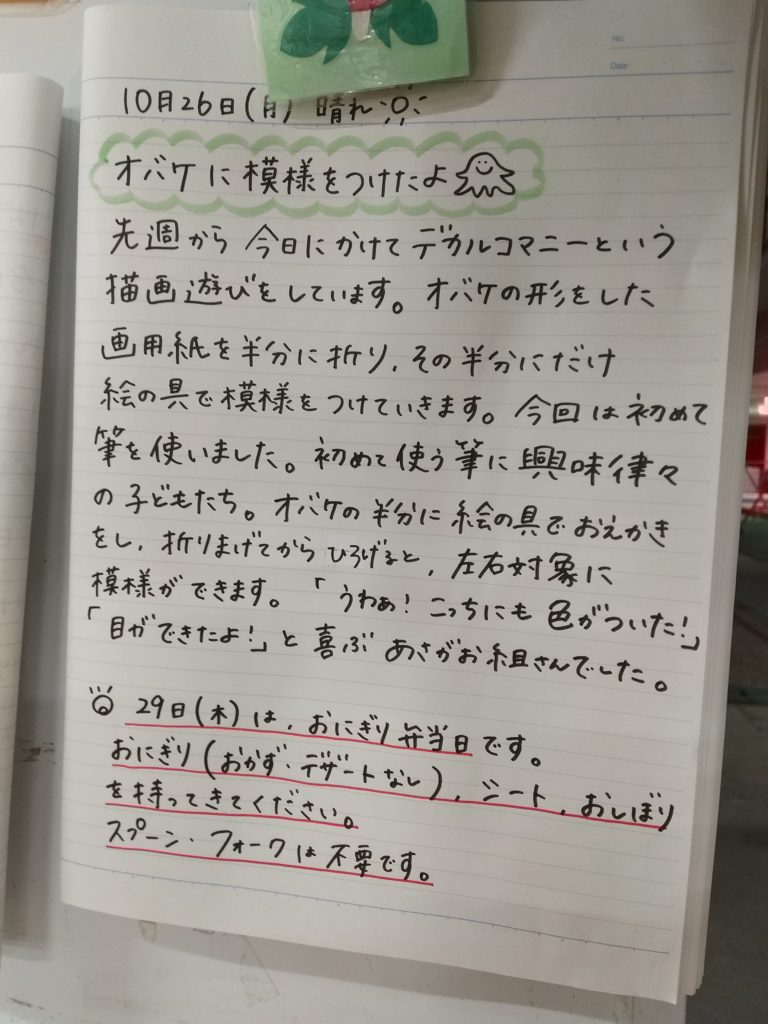 No.
Date
10月26日(月) 晴れ
オバケに模様をつけたよ
先週から今日にかけてデカルコマニーという
描画遊びをしています。オバケの形をした
画用紙を半分に折り、その半分にだけ
絵の具で模様をつけていきます。今回は初めて
筆を使いました。初めて使う筆に興味律々
の子どもたち。オバケの半分に絵の具でおえかき
をし、折りまげてからひろげると、左右対象に
模様ができます。「うわぁ!こっちにも色がついた!」
「目ができたよ!」と喜ぶあさがお組さんでした。
29日(木)は、おにぎり弁当日です。
おにぎり(おかず・デザートなし)、シート、おしぼり
を持ってきてください。
スプーン・フォークは不要です。